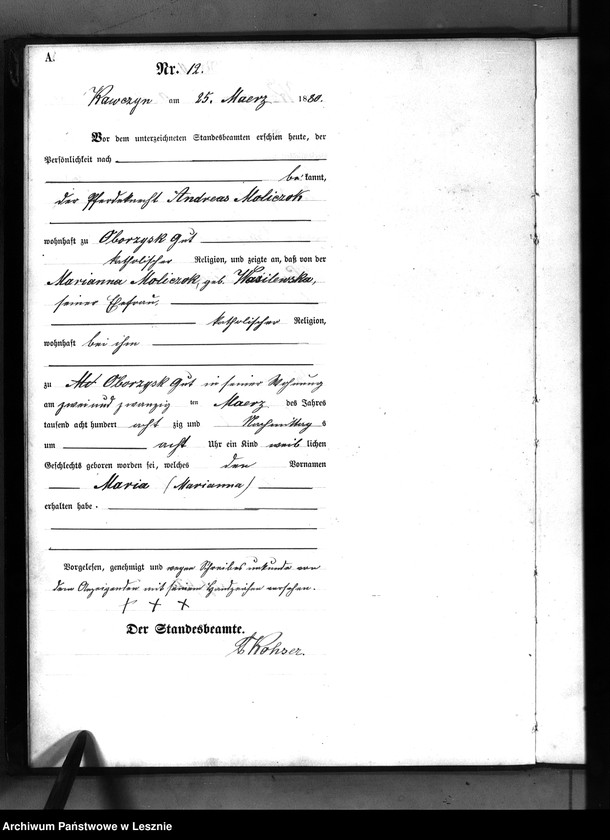 A.
Nr. 12.
Kawczyn am 25. Maerz 1880.
Vor dem unterzeichneten Standesbeamten erschien heute, der
Persönlichkeit nach
bekannt,
der Pferdeknecht Andreas Moliczok
wohnhaft zu Oborzysk Gut
katholischer Religion, und zeigte an, daß von der
Marianna Moliczok, geb. Wasilewska,
seiner Ehefrau,
katholischer Religion,
wohnhaft bei ihm
zu Oborzysk Gut in seiner Wohnung
am zwei und zwanzig ten Maerz des Jahres
tausend acht hundert acht zig und Nachmittag s
um acht Uhr ein Kind weib lichen
Geschlechts geboren worden sei, welches den Vornamen
Maria (Marianna)
erhalten habe.
Vorgelesen, genehmigt und wegen Schreibensunkunde von
dem Anzeigenden mit seinem Handzeichen versehen.
+ + +
Der Standesbeamte.
Kohser.
Archiwum Państwowe w Lesznie